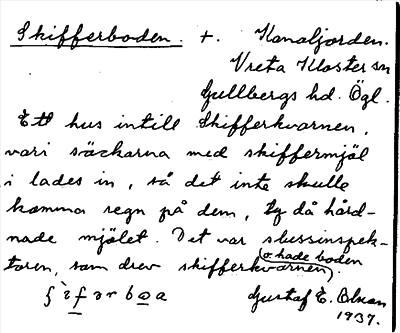 Skifferboden. +. Kanaljorden.
Vreta Kloster sn
Gullbergs hd. Ögl.
Ett hus intill Skifferkvarnen,
vari säckarna med skiffermjöl
i lades in, så det inte skulle
komma regn på dem, ty då hård-
nade mjölet. Det var slussinspek-
toren, som drev skifferkvarnen
o. hade boden).
Gustaf E. Olsson
1937.